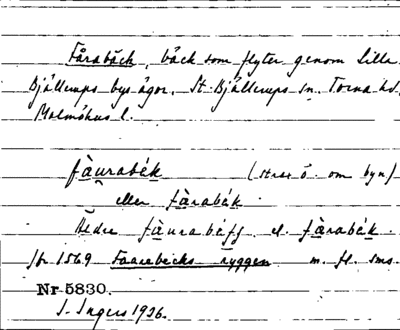 Fårabäck, bäck som flyter genom Lilla
Bjällerups bys ägor. St. Bjällerups sn. Torna hd,
Malmöhus l.
fàurabék (strax ö. om byn)
eller fàrabék
fàurabéḱ el. fàrabék.
Jfr 1569 Faarebecks ryggen m. fl. sms.
Nr 5830.
I. Ingers 1926.